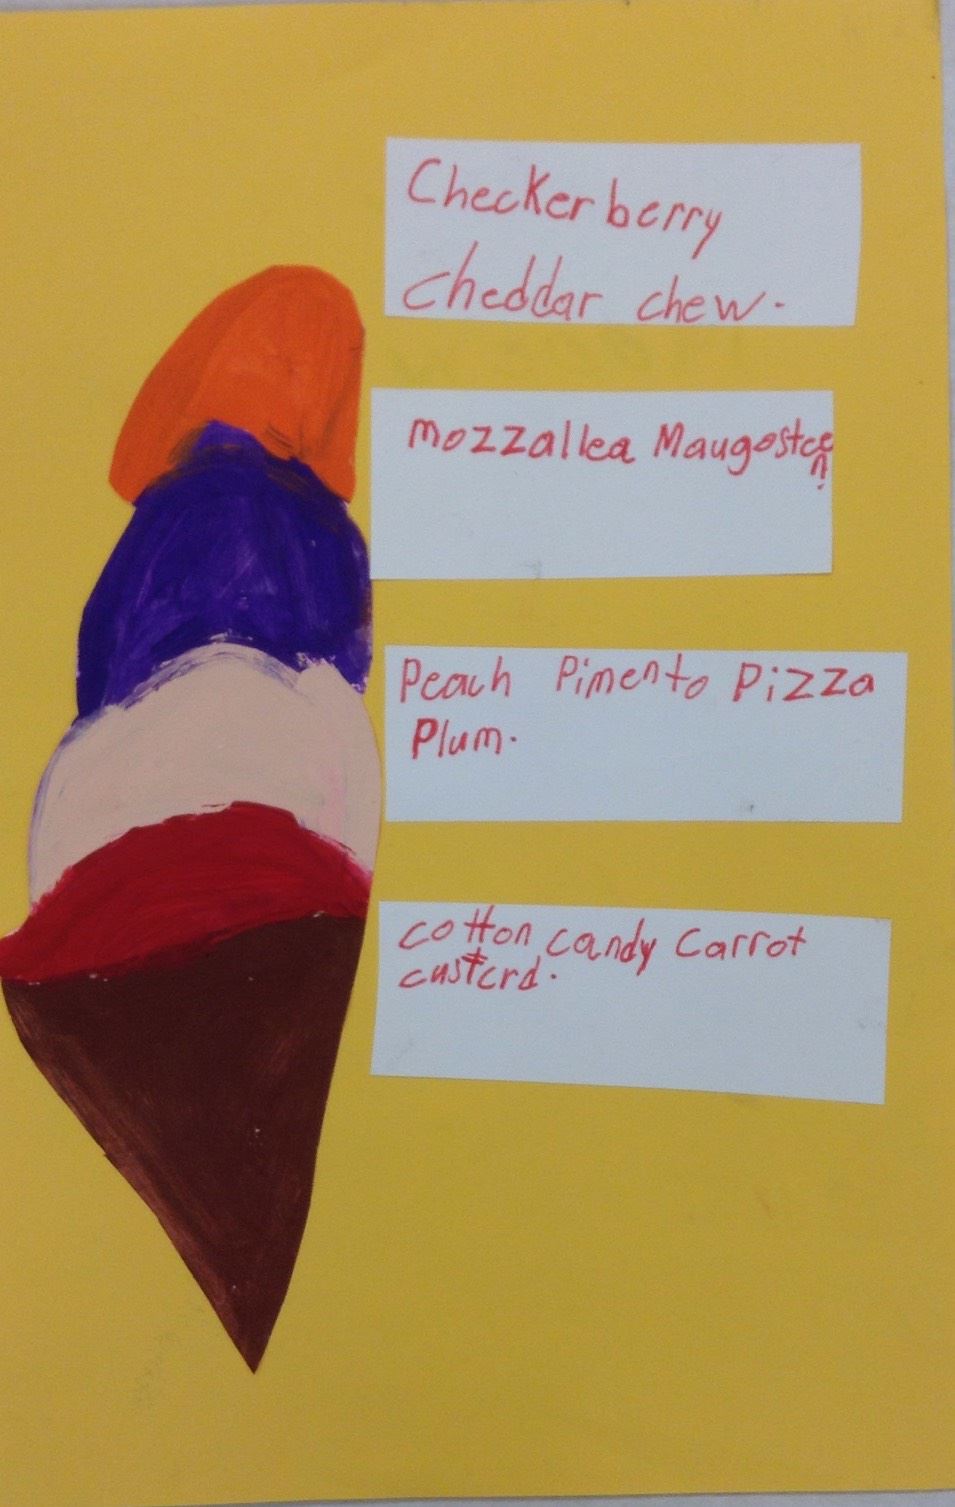 Checkerberry
cheddar chew.
Mozzallea Maugosteen.
Peach Pimento Pizza
Plum.
cotton candy Carrot
custerd.